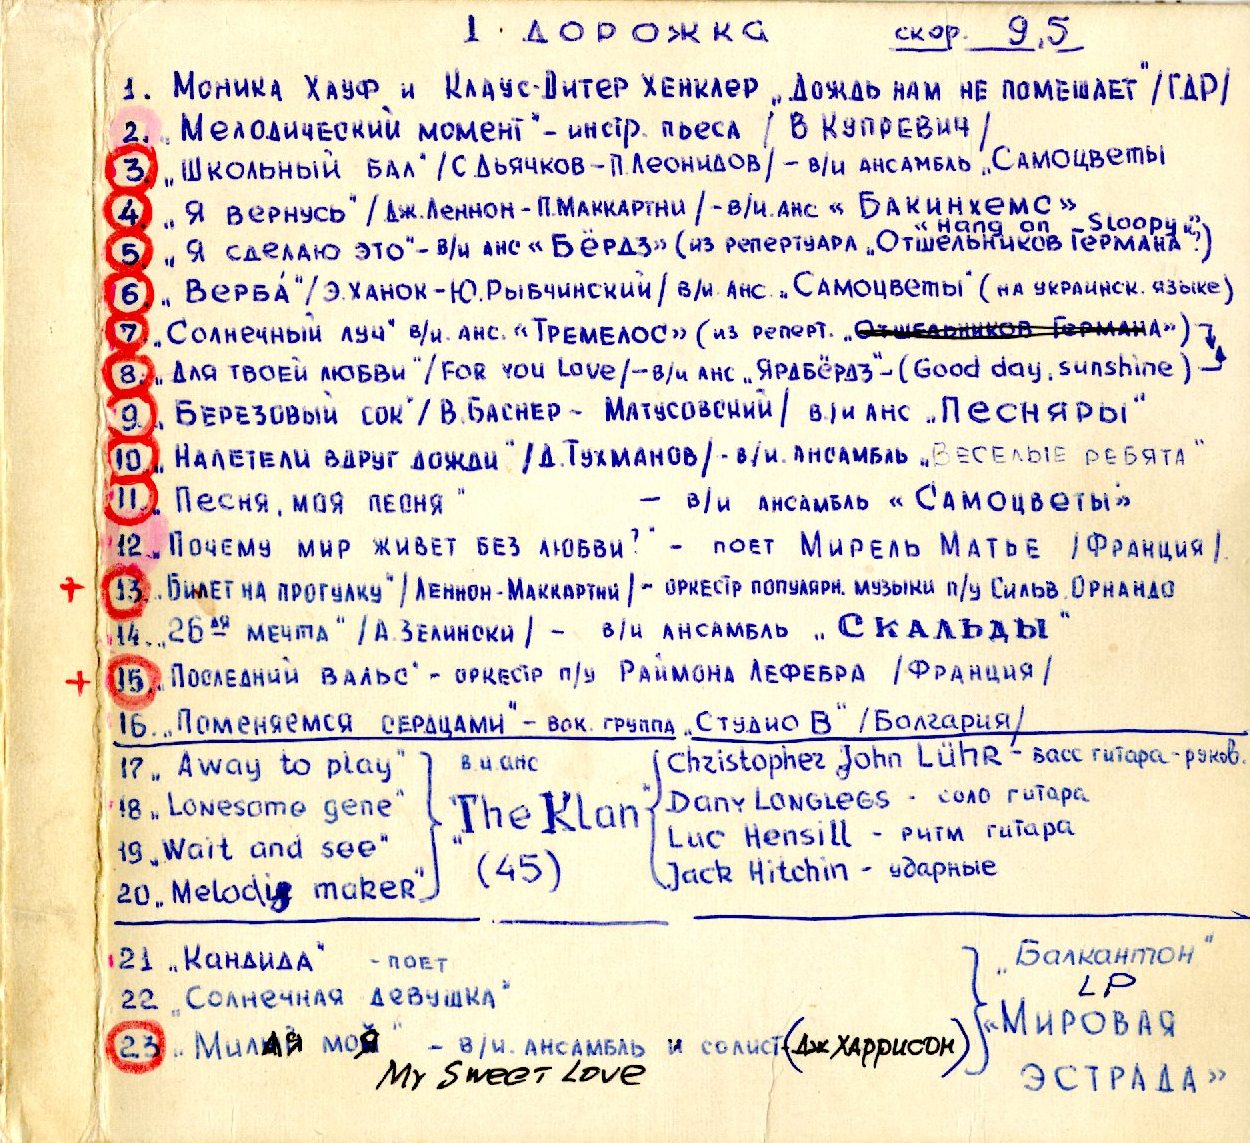 1 · ДОРОЖКА скор. 9,5
1. Моника Хауф и Клаус-Дитер Хенклер „Дождь нам не помешает" /ГДР/
2. „Мелодический момент" - инстр. пьеса / В Купревич /
3. „Школьный бал" /С Дьячков - П.Леонидов/ - в/и ансамбль „Самоцветы
4. „Я вернусь" /Дж.Леннон - П.Маккартни/ - в/и. анс «Бакинхемс»
« Hang on - Sloopy »
5. „Я сделаю это" - в/и анс «Бёрдз» (из репертуара „Отшельников Германа"?)
6. „Верба" /Э.Ханок - Ю.Рыбчинский/ в/и. анс. „Самоцветы" (на украинск. языке)
7. „Солнечный луч" в/и. анс. «Тремелос» (из реперт. „Отшельников Германа»)
8. „Для твоей любви" /For you Love/ - в/и анс „Ярдбёрдз" - (Good day, sunshine)
9. „Березовый сок" /В.Баснер - Матусовский/ в/и анс „Песняры"
10. „Налетели вдруг дожди" /Д.Тухманов/ - в/и. ансамбль „Веселые ребята"
11. „Песня, моя песня" - в/и ансамбль «Самоцветы»
12. „Почему мир живет без любви?" - поет Мирель Матье /Франция/.
+ 13. „Билет на прогулку" /Леннон - Маккартни/ - оркестр популярн. музыки п/у Сильв. Орнандо
14. „26ая мечта" /А.Зелински/ - в/и ансамбль „Скальды"
+ 15. „Последний вальс" - оркестр п/у Раймона Лефебра /Франция/
16. „Поменяемся сердцами" - вок. группа „Студио В" /Болгария/
17 „Away to play" в.и анс Christopher John Lühr - басс гитара - руков.
18 „Lonesome gene" "The Klan" Dany Longlegs - соло гитара
19 „Wait and see" Luc Hensill - ритм гитара
20 „Melody maker" (45) Jack Hitchin - ударные
21 „Кандида" - поет „Балкантон"
22 „Солнечная девушка" LP
23 „Милая моя" - в/и. ансамбль и солист (Дж Харрисон) «Мировая
My Sweet Love эстрада»